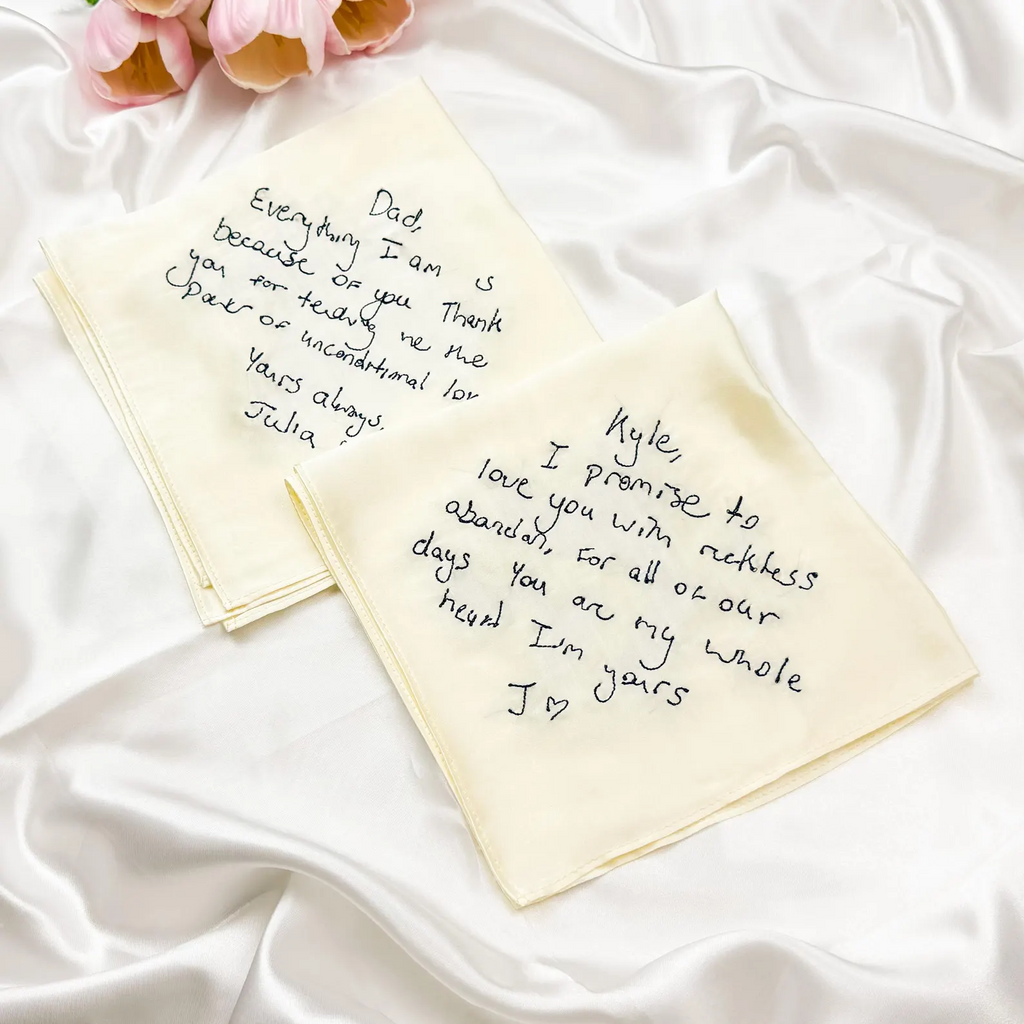 Dad,
Everything I am is
because of you Thank
you for teaching me the
power of unconditional lov
Yours always,
Julia
Kyle,
I promise to
love you with reckless
abandon, for all of our
days You are my whole
heart I'm yours
J ♡